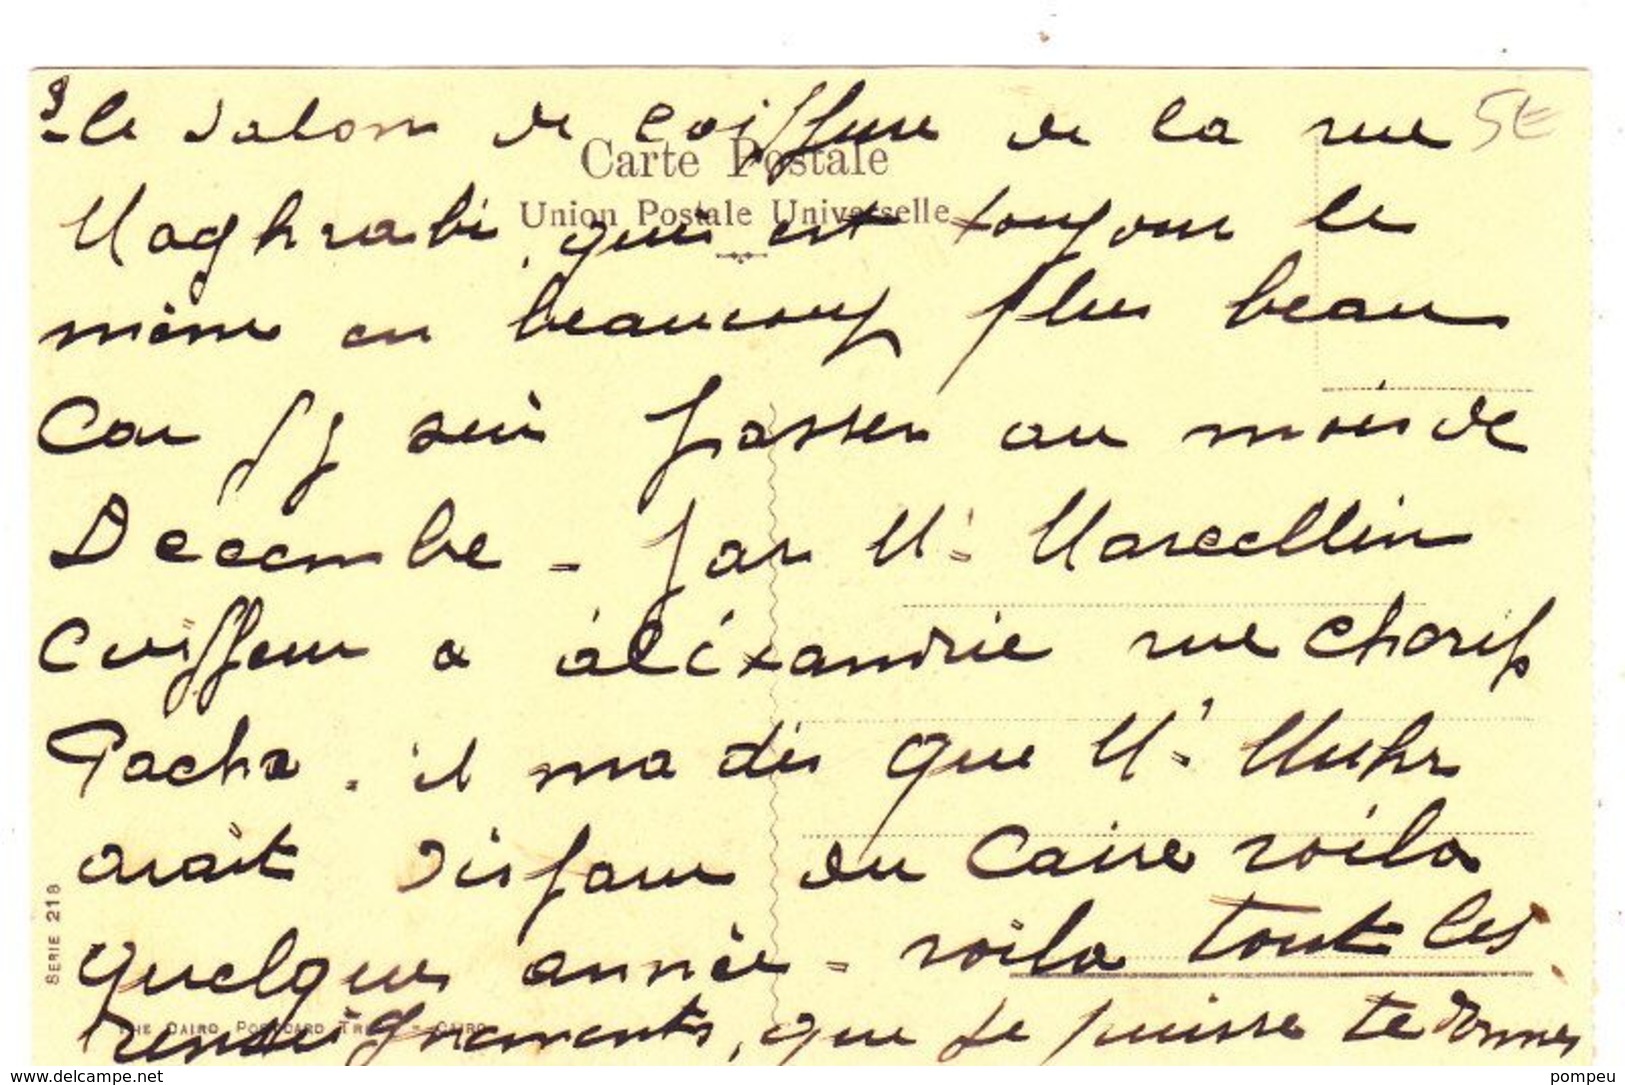 le salon de coiffure de la rue 5€
Carte Postale
Maghrabi, qui est toujour le
Union Postale Universelle
même en beaucoup plus beau
Car j'y sui passer au mois de
Decembe - par Mr Marcellin
Coiffeur a aléxandrie rue Cherif
Pacha. il ma dis que Mr Muhr
avait disparu du Caire voila
quelques année - voila tout les
renseignements, que je puisse te donner
SERIE 218
THE CAIRO POSTCARD TRUST - CAIRO
www.delcampe.net
pompeu